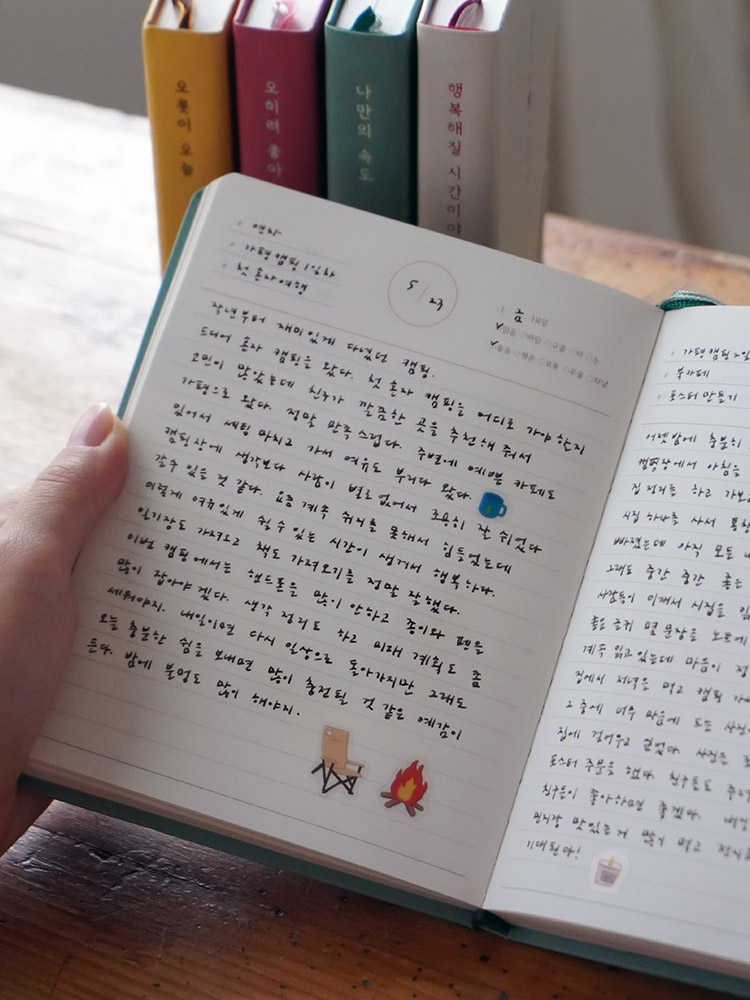 오롯이 오늘
오히려 좋아
나만의 속도
행복해질 시간이야
연차
가평캠핑 1일차
첫 혼자여행
5/23
금 요일
맑음 바람 구름 비 눈
좋음 평온 보통 우울 화남
작년부터 재미있게 다녔던 캠핑.
드디어 혼자 캠핑을 왔다. 첫 혼자 캠핑을 어디로 가야 한지
고민이 많았는데 친구가 깔끔한 곳을 추천해 줘서
가평으로 왔다. 정말 만족스럽다. 주변에 예쁜 카페도
있어서 세팅 마치고 가서 여유도 부리다 왔다.
캠핑장에 생각보다 사람이 별로 없어서 조용히 잘 쉬었다
갈수 있을 것 같다. 요즘 계속 쉬지를 못해서 힘들었는데
이렇게 여유있게 쉴수 있는 시간이 생겨서 행복하다.
일기장도 가져오고 책도 가져오기를 정말 잘했다.
이번 캠핑에서는 핸드폰을 많이 안하고 종이와 펜을
많이 잡아야겠다. 생각 정리도 하고 미래 계획도 좀
세워야지. 내일이면 다시 일상으로 돌아가지만 그래도
오늘 충분한 쉼을 보내면 많이 충전될 것 같은 예감이
든다. 밤에 불멍도 많이 해야지.
가평캠핑 2일
북카페
포스터 만들기
어젯밤에 충분히
캠핑장에서 아침을
집 정리를 하고 가보
시집 하나를 사서
빠졌는데 아직 모든
그래도 중간 중간 좋은
사람들이 이래서 시집을
좋은 글귀 몇 문장을 노트에
계속 읽고있는데 마음이
집에서 저녁을 먹고 캠핑
그 중에 너무 마음에 드는 사진
집에 걸어두고 싶었다. 사진은
포스터 주문을 했다. 친구들도
친구들이 좋아하면 좋겠다.
맛있는거 많이 먹고
기대된다!